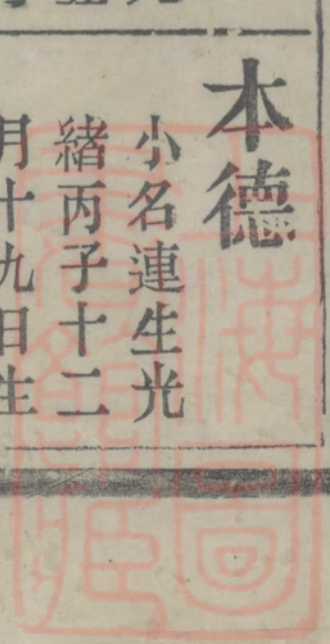 本德
小名連生光
緒丙子十二
月十九日生